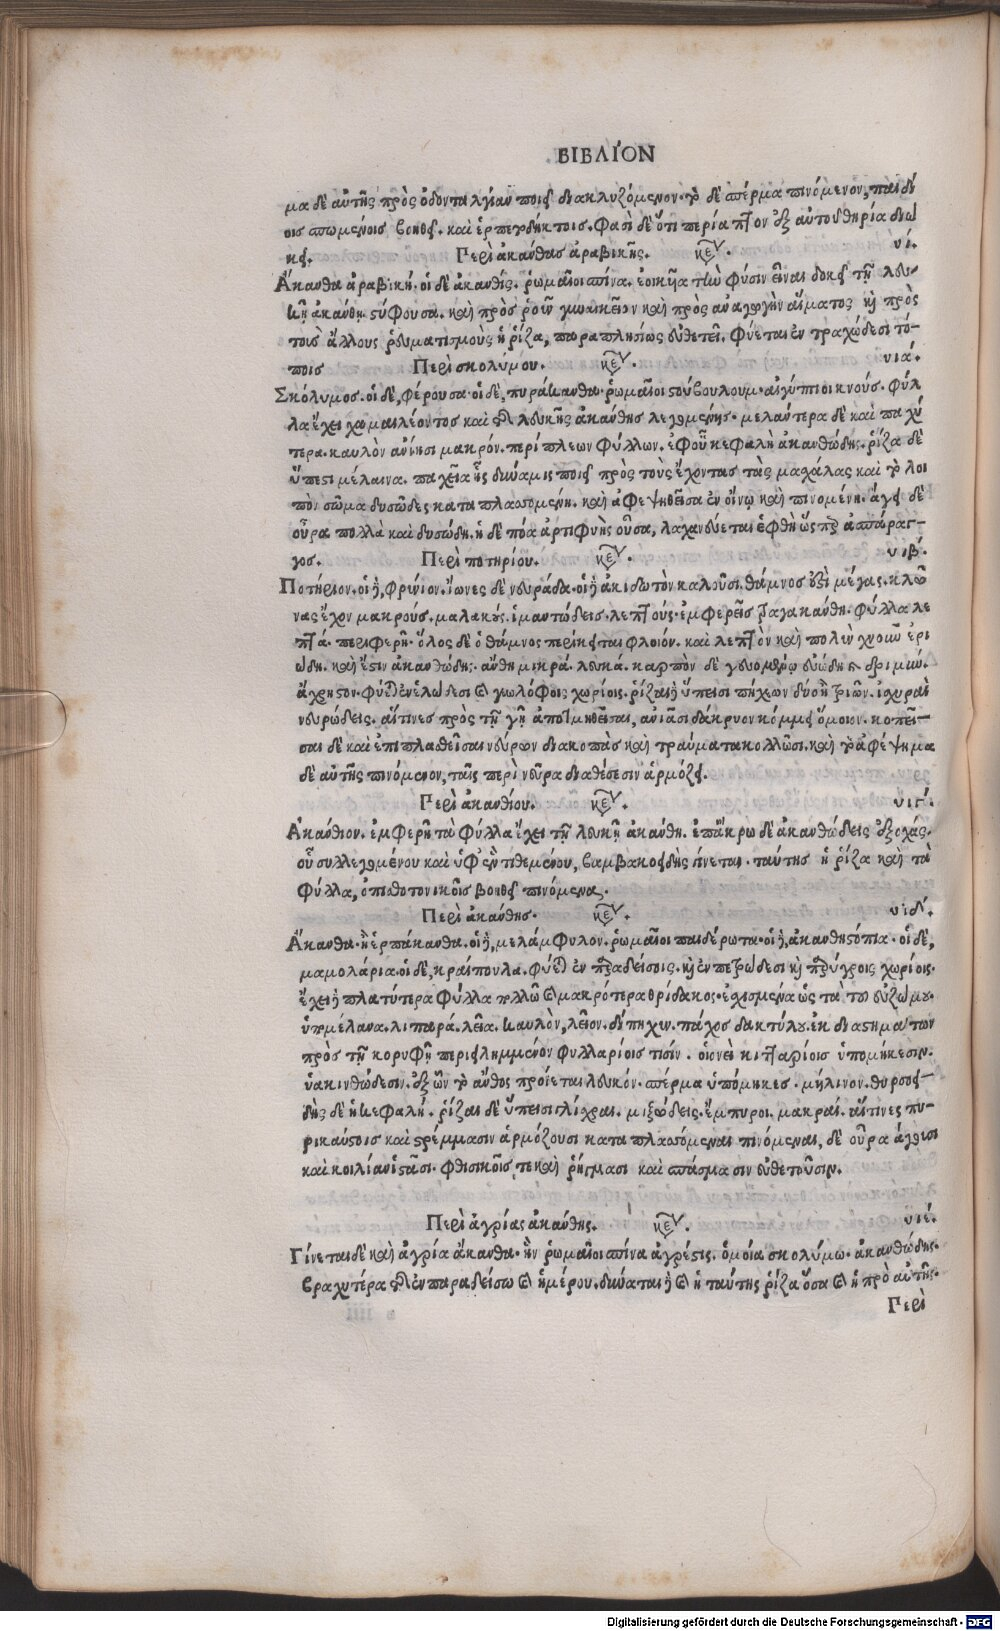 ΒΙΒΛΙΌΝ
μα δὲ αὐτῆς πρὸς ὀδονταλγίαν ποιεῖ διακλυζόμενον. τὸ δὲ σπέρμα πινόμενον, παιδί
οις σπωμένοις βοηθεῖ. καὶ ἑρπετοδήκτοις. Φασὶ δὲ ὅτι περίαπτον ὂξ αὐτοῦ θηρία διώ
κει. Περὶ ἀκάνθας ἀραβικῆς. κεφ. υί.
Ἄκανθα ἀραβική. οἱ δὲ ἀκανθίς. ῥωμαῖοι σπίνα. ἐοικῆα τὼ φύσιν εἶναι δοκεῖ τῇ λευ-
κῇ ἀκάνθῃ. στύφουσα. καὶ πρὸς ῥοῦν γυναικεῖον καὶ πρὸς ἀναγωγὴν αἵματος καὶ πρὸς
τοὺς ἄλλους ῥευματισμοὺς ἡ ῥίζα, παραπλησίως εὐθετεῖ. Φύεται ἐν τραχώδεσι τό-
ποις Περὶ σκολύμου. κεφ. υιά.
Σκόλυμος. οἱ δὲ, φέρουσα. οἱ δὲ, πυράκανθα. ῥωμαῖοι στούβουλουμ. αἰγύπτιοι κνούς. φύλ
λα ἔχει χαμαιλέοντος καὶ τῆς λευκῆς ἀκάνθης λεγομένης. μελάντερα δὲ καὶ παχύ
τερα. καυλὸν ἀνίησι μακρόν. περίπλεων φύλλων. ἐφ οὗ κεφαλὴ ἀκανθώδης. ῥίζα δὲ
ὕπεστι μέλαινα. παχεῖα ἧς δύναμις ποιεῖ πρὸς τοὺς ἔχοντας τὰς μαχάλας καὶ τὸ λοι
πὸν σῶμα δυσῶδες καταπλασσομένη. καὶ ἀφεψηθεῖσα ἐν οἴνῳ καὶ πινομένη. ἄγει δὲ
οὖρα πολλὰ καὶ δυσώδη. ἡ δὲ πόα ἀρτιφυὴς οὖσα, λαχανεύεται ἑφθὴ ὥσπερ ἀσπάρας-
γος. Περὶ ποτηρίου. κεφ. υιβ.
Ποτήριον. οἱ δὲ, φρύνιον. ἴωνες δὲ νευράδα. οἱ δὲ ἀκιδωτὸν καλοῦσι. θάμνος ὂξὶ μέγας. κλῶ
νας ἔχον μακρούς. μαλακούς. ἱμαντώδεις. λεπτούς. ἐμφερεῖς τραγακάνθῃ. φύλλα λε
πτά. περιφερῆ. ὅλος δὲ ὁ θάμνος περίκειται φλοιόν. καὶ λεπτὸν καὶ πολὺν χνοῦν ἐρι
ώδη. καὶ ἔστιν ἀκανθώδης. ἄνθη μικρά. λευκά. καρπὸν δὲ γευομένῳ εὐώδη καὶ δριμύν.
ἄχρηστον. φύεται ἐν ἑλώδεσι καὶ γεωλόφοις χωρίοις. ῥίζαι δὲ ὕπεισι πήχων δύο ἢ τριῶν. ἰσχυραὶ
νευρώδεις. αἵτινες πρὸς τῇ γῇ ἀποτμηθεῖσαι, ἀνιᾶσι δάκρυον κόμμει ὅμοιον. κοπεῖ-
σαι δὲ καὶ ἐπιπλασθεῖσαι νεύρων διακοπὰς καὶ τραύματα κολλῶσι. καὶ τὸ ἀφέψημα
δὲ αὐτῆς πινόμενον, ταῖς περὶ νεῦρα διαθέσεσιν ἁρμόζει.
Περὶ ἀκανθίου. κεφ. υιγ.
Ἀκάνθιον. ἐμφερῆ τὰ φύλλα ἔχει τῇ λευκῇ ἀκάνθῃ. ἐπάκρω δὲ ἀκανθώδεις ἐξοχάς.
οὗ συλλεγομένου καὶ ὑφ ἓν τιθεμένου, βαμβακοειδὴς γίνεται. ταύτης ἡ ῥίζα καὶ τὰ
φύλλα, ὀπισθοτονικοῖς βοηθεῖ πινόμενα.
Περὶ ἀκάνθης. κεφ. υιδ.
Ἄκανθα. ἢ ἑρπάκανθα. οἱ δὲ, μελάμφυλον. ῥωμαῖοι παιδέρωτα. οἱ δὲ, ἀκανθηστόπια. οἱ δὲ,
μαμολάρια. οἱ δὲ, κραίπουλα. φύεται ἐν παραδείσοις. καὶ ἐν πετρώδεσι καὶ παρύγροις χωρίοις.
ἔχει δὲ πλατύτερα φύλλα πολλῷ καὶ μακρότερα θρίδακος. ἐσχισμένα ὡς τὰ τοῦ εὐζώμου.
ὑπομέλανα. λιπαρά. λεῖα. καυλὸν, λεῖον. δίπηχυν. πάχος δακτύλου. ἐκ διαστημάτων
πρὸς τῇ κορυφῇ περιειλημμένον φυλλαρίοις τισίν. οἱονεὶ κιτταρίοις ὑπομήκεσιν.
ὑακινθώδεσιν. ἐξ ὧν τὸ ἄνθος προίεται λευκόν. σπέρμα ὑπόμηκες. μήλινον. θυρσοει-
δὴς δὲ ἡ κεφαλή. ῥίζαι δὲ ὕπεισι γλίσχραι. μιξώδεις. ἔμπυροι. μακραί. αἵτινες πυ-
ρικαύστοις καὶ στρέμμασιν ἁρμόζουσι καταπλασσόμεναι πινόμεναι, δὲ οὖρα ἄγουσι
καὶ κοιλίαν ἱστᾶσι. φθισικοῖς τε καὶ ῥήγμασι καὶ σπάσμασιν εὐθετοῦσιν.
Περὶ ἀγρίας ἀκάνθης. κεφ. υιέ.
Γίνεται δὲ καὶ ἀγρία ἄκανθα. ἣν ῥωμαῖοι σπίνα ἀγρέστις. ὁμοία σκολύμω. ἀκανθώδης.
βραχυτέρα τῆς ἐν παραδείσω καὶ ἡμέρου. δύναται δὲ καὶ ἡ ταύτης ῥίζα ὅσα καὶ ἡ πρὸ αὐτῆς.
Περὶ
Digitalisierung gefördert durch die Deutsche Forschungsgemeinschaft - DFG